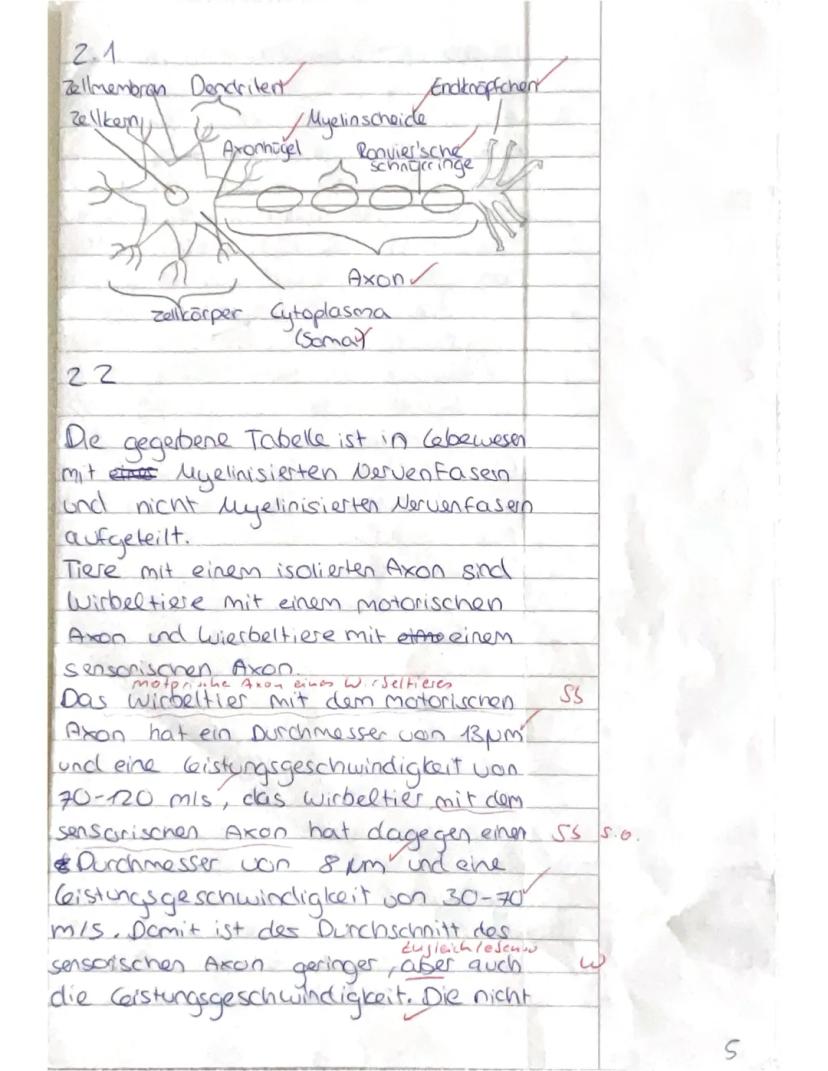 2.1
Zellmembran Dendriten Endknöpfchen
Zellkern Myelinscheide
Axonhügel Ranvier'sche
schnürringe
Axon
Zellkörper Cytoplasma
(Soma)
2 2
Die gegebene Tabelle ist in Lebewesen
mit eines Myelinisierten Nervenfasern
und nicht Myelinisierten Nervenfasern
aufgeteilt.
Tiere mit einem isolierten Axon sind
Wirbeltiere mit einem motorischen
Axon und Wierbeltiere mit eine einem
sensorischen Axon.
motorische Axon eines Wirbeltieres
Das Wirbeltier mit dem motorischen SS
Axon hat ein Durchmesser von 13µm
und eine Leistungsgeschwindigkeit von
70-120 m/s, das Wirbeltier mit dem
sensorischen Axon hat dagegen einen SS s.o.
Durchmesser von 8 µm und eine
Leistungsgeschwindigkeit von 30-70
m/s. Damit ist des Durchschnitt des
sensorischen Axon geringer, aber auch W
die Leistungsgeschwindigkeit. Die nicht
5